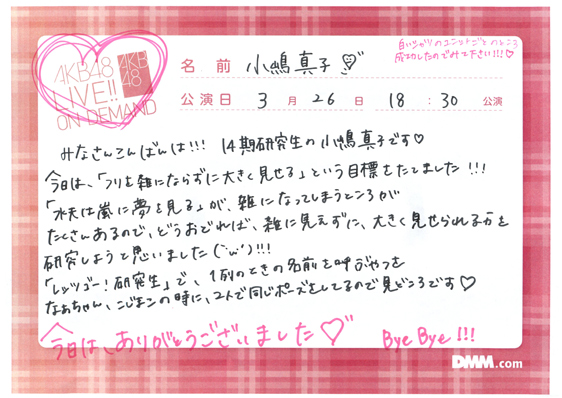 AKB48
LIVE!!
ON DEMAND
AKB
48
名前 小嶋真子♡
成功したので みて下さい!!!♡
公演日 3月26日 18:30 公演
みなさんこんばんは!!! 14期研究生の小嶋真子です♡
今日は、「フリを雑にならずに大きく見せる」という目標をたてました!!!
「水夫は嵐に夢を見る」が、雑になってしまうところが
たくさんあるので、どうおどれば、雑に見えずに、大きく見せられるかを
研究しようと思いました(˙ω˙)!!!
「レッツゴー!研究生」で、1列のときの名前を呼ぶやつを
なぁちゃん、こじまこの時に、2人で同じポーズをしてるので見どころです♡
今日は、ありがとうございました♡ Bye Bye!!!
DMM.com